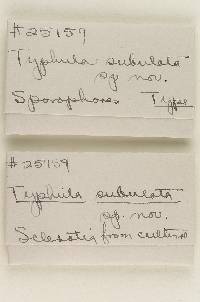 #25159
Typhula subulata
sp. nov.
Sporophores Type
#25159
Typhula subulata
sp. nov.
Sclerotia from culture